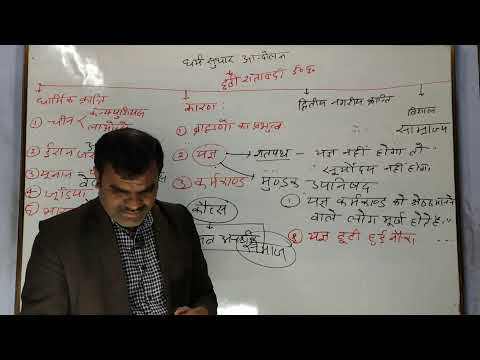 धर्म सुधार आन्दोलन
छठी शताब्दी ई०पू०
धार्मिक क्रान्ति
① चीन
कन्फ्युशियस
② ईरान
③ यूनान
④ जूडिया
⑤
कारण :
① ब्राह्मणों का प्रभुत्व
② यज्ञ → शतपथ — यज्ञ नहीं होगा तो
सूर्योदय नहीं होगा
③ कर्मकाण्ड मुण्डक उपनिषद
① यज्ञ कर्मकाण्ड को श्रेष्ठ मानने
वाले लोग मूर्ख होते हैं"
② यज्ञ टूटी हुई नौका ...
कौत्स
समाज
द्वितीय नगरीय क्रान्ति
विशाल
साम्राज्य